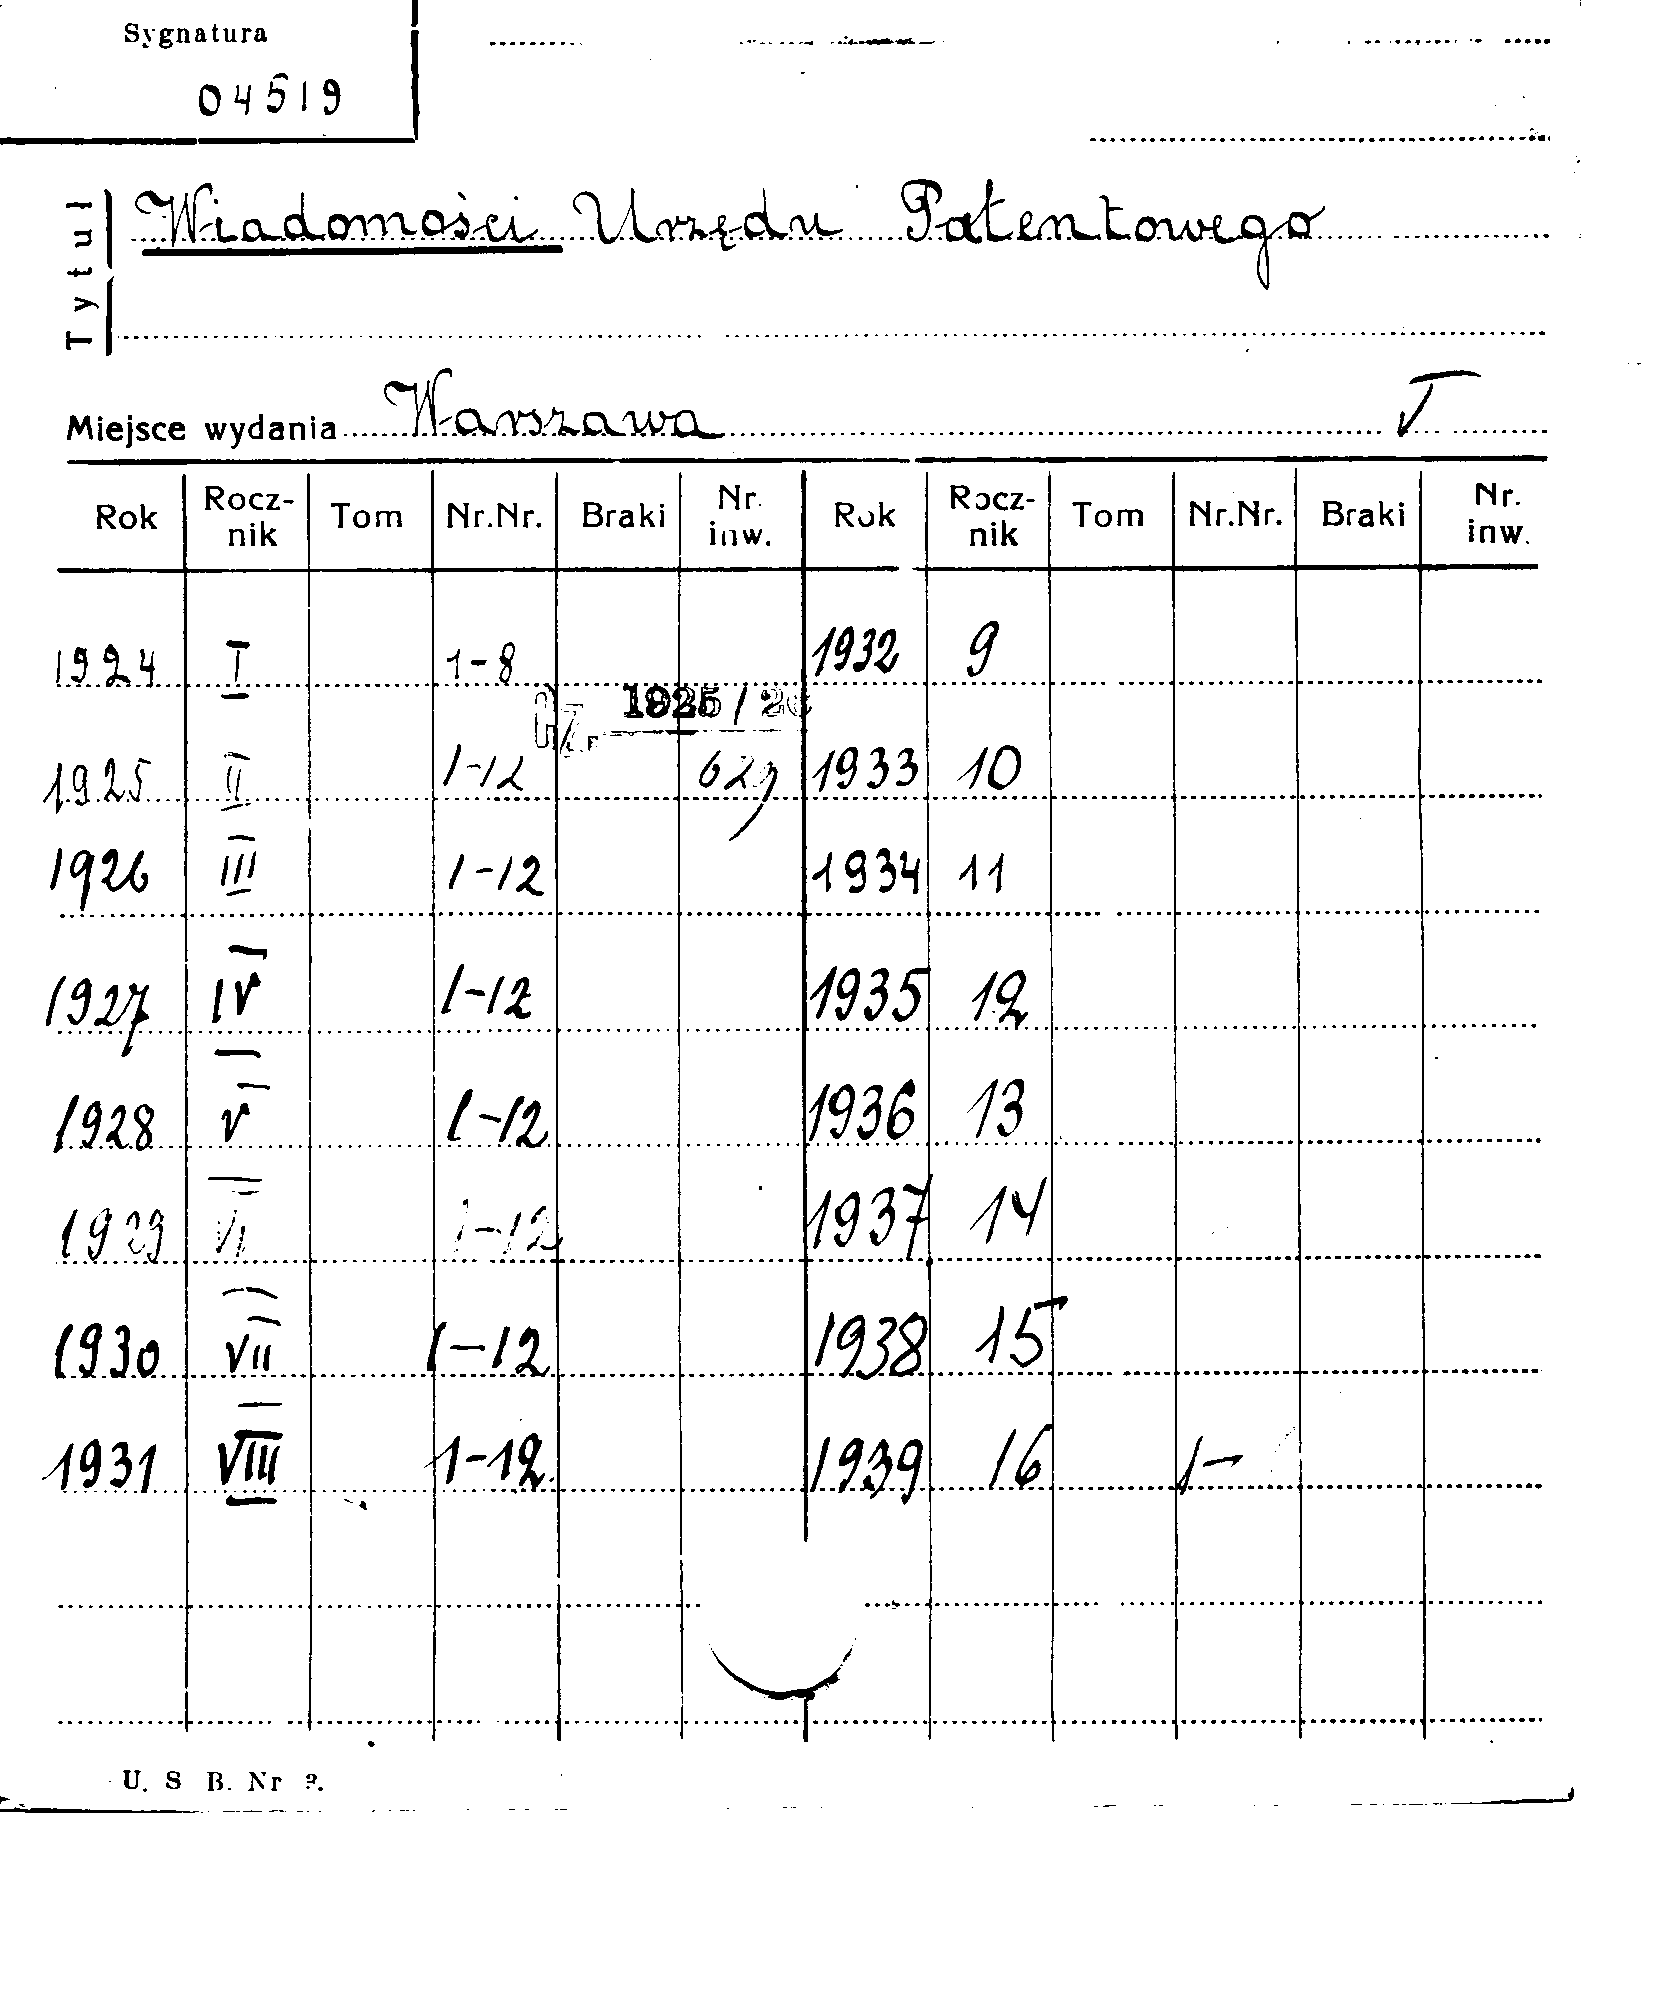 Sygnatura
04519
Tytuł
Wiadomości Urzędu Patentowego
Miejsce wydania Warszawa
Rok Rocz-nik Tom Nr.Nr. Braki Nr. inw. Rok Rocz-nik Tom Nr.Nr. Braki Nr. inw.
1924 I 1-8 1932 9
Cz. 1925/26
1925 II 1-12 629 1933 10
1926 III 1-12 1934 11
1927 IV 1-12 1935 12
1928 V 1-12 1936 13
1929 VI 1-12 1937 14
1930 VII 1-12 1938 15
1931 VIII 1-12 1939 16 1-
U. S B. Nr